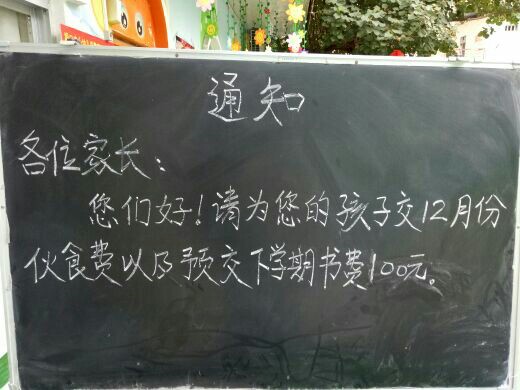 通知
各位家长：
您们好！请为您的孩子交12月份
伙食费以及预交下学期书费100元。